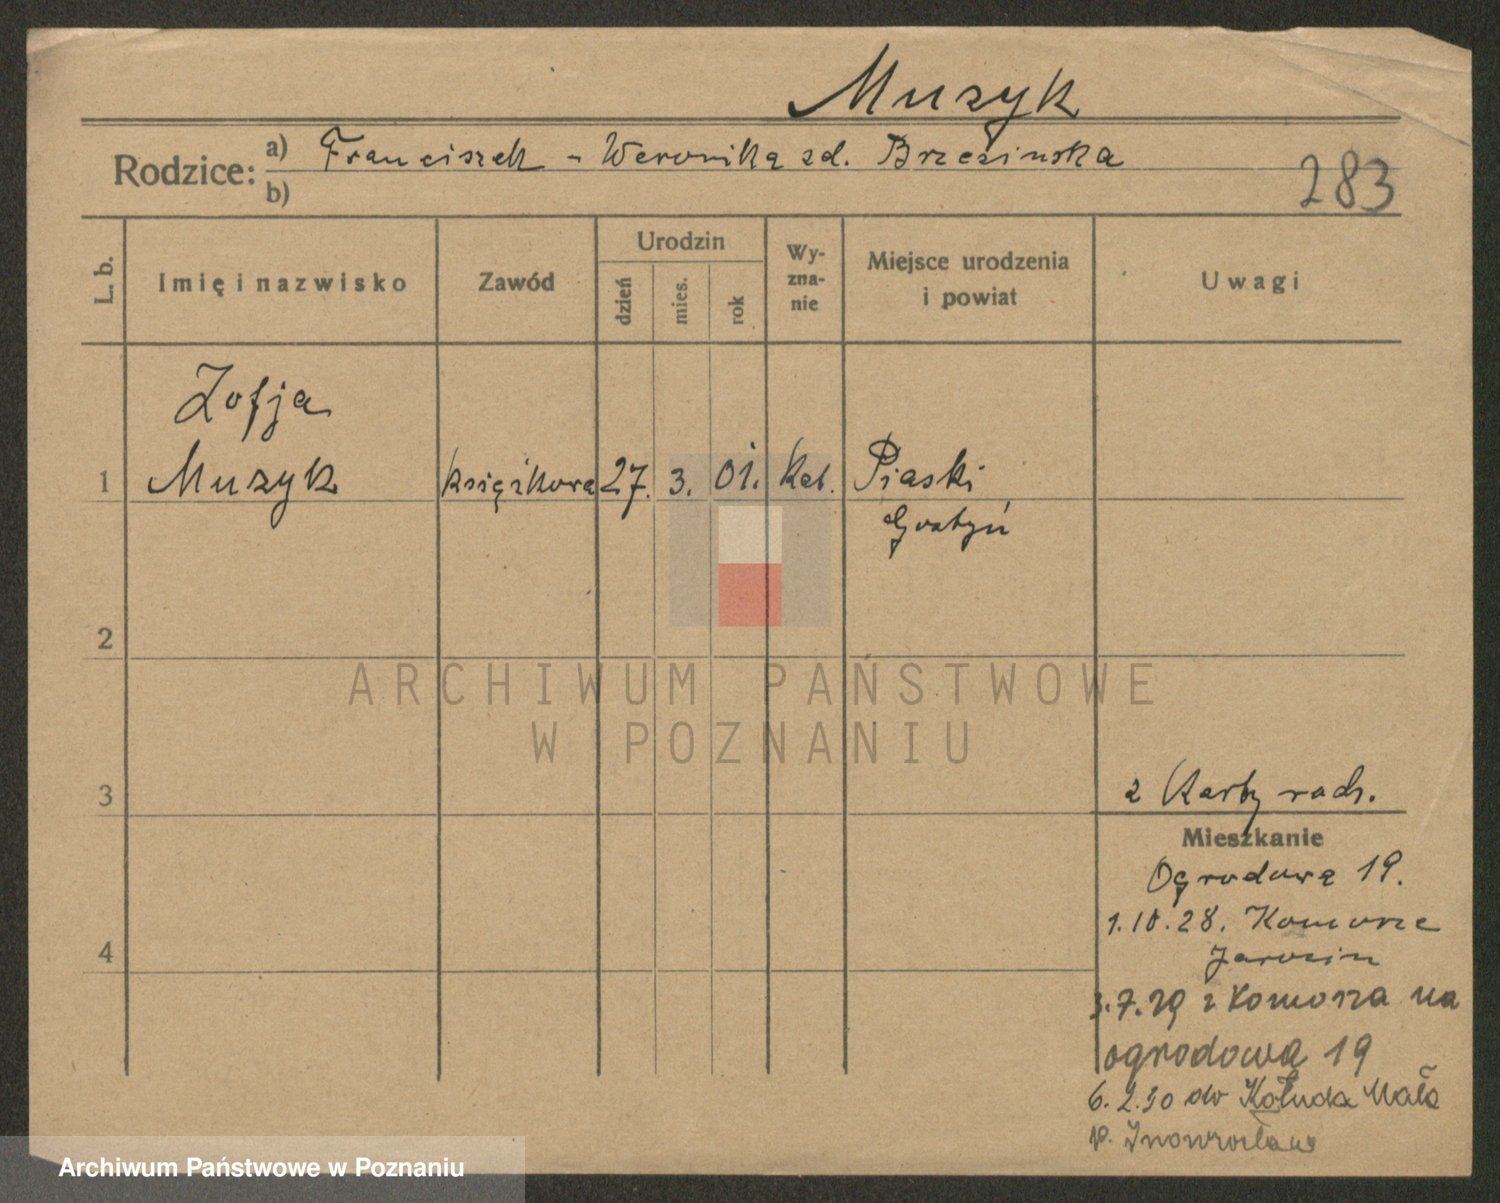 Muzyk
Rodzice: a) Franciszek - Weronika zd. Brzezinska
b)
283
L. b.
Imię i nazwisko
Zawód
Urodzin
dzień
mies.
rok
Wy-
zna-
nie
Miejsce urodzenia
i powiat
Uwagi
Zofja
1 Muzyk książkowa 27. 3. 01. kat. Piaski
Gostyń
2
ARCHIWUM PAŃSTWOWE
W POZNANIU
3
z Karty rodz.
Mieszkanie
Ogrodowa 19.
1.10.28. Komorze
Jarocin
4
3.7.29 z Komorza na
ogrodową 19
6.2.30 do Kołuda Mała
p. Inowrocław
Archiwum Państwowe w Poznaniu